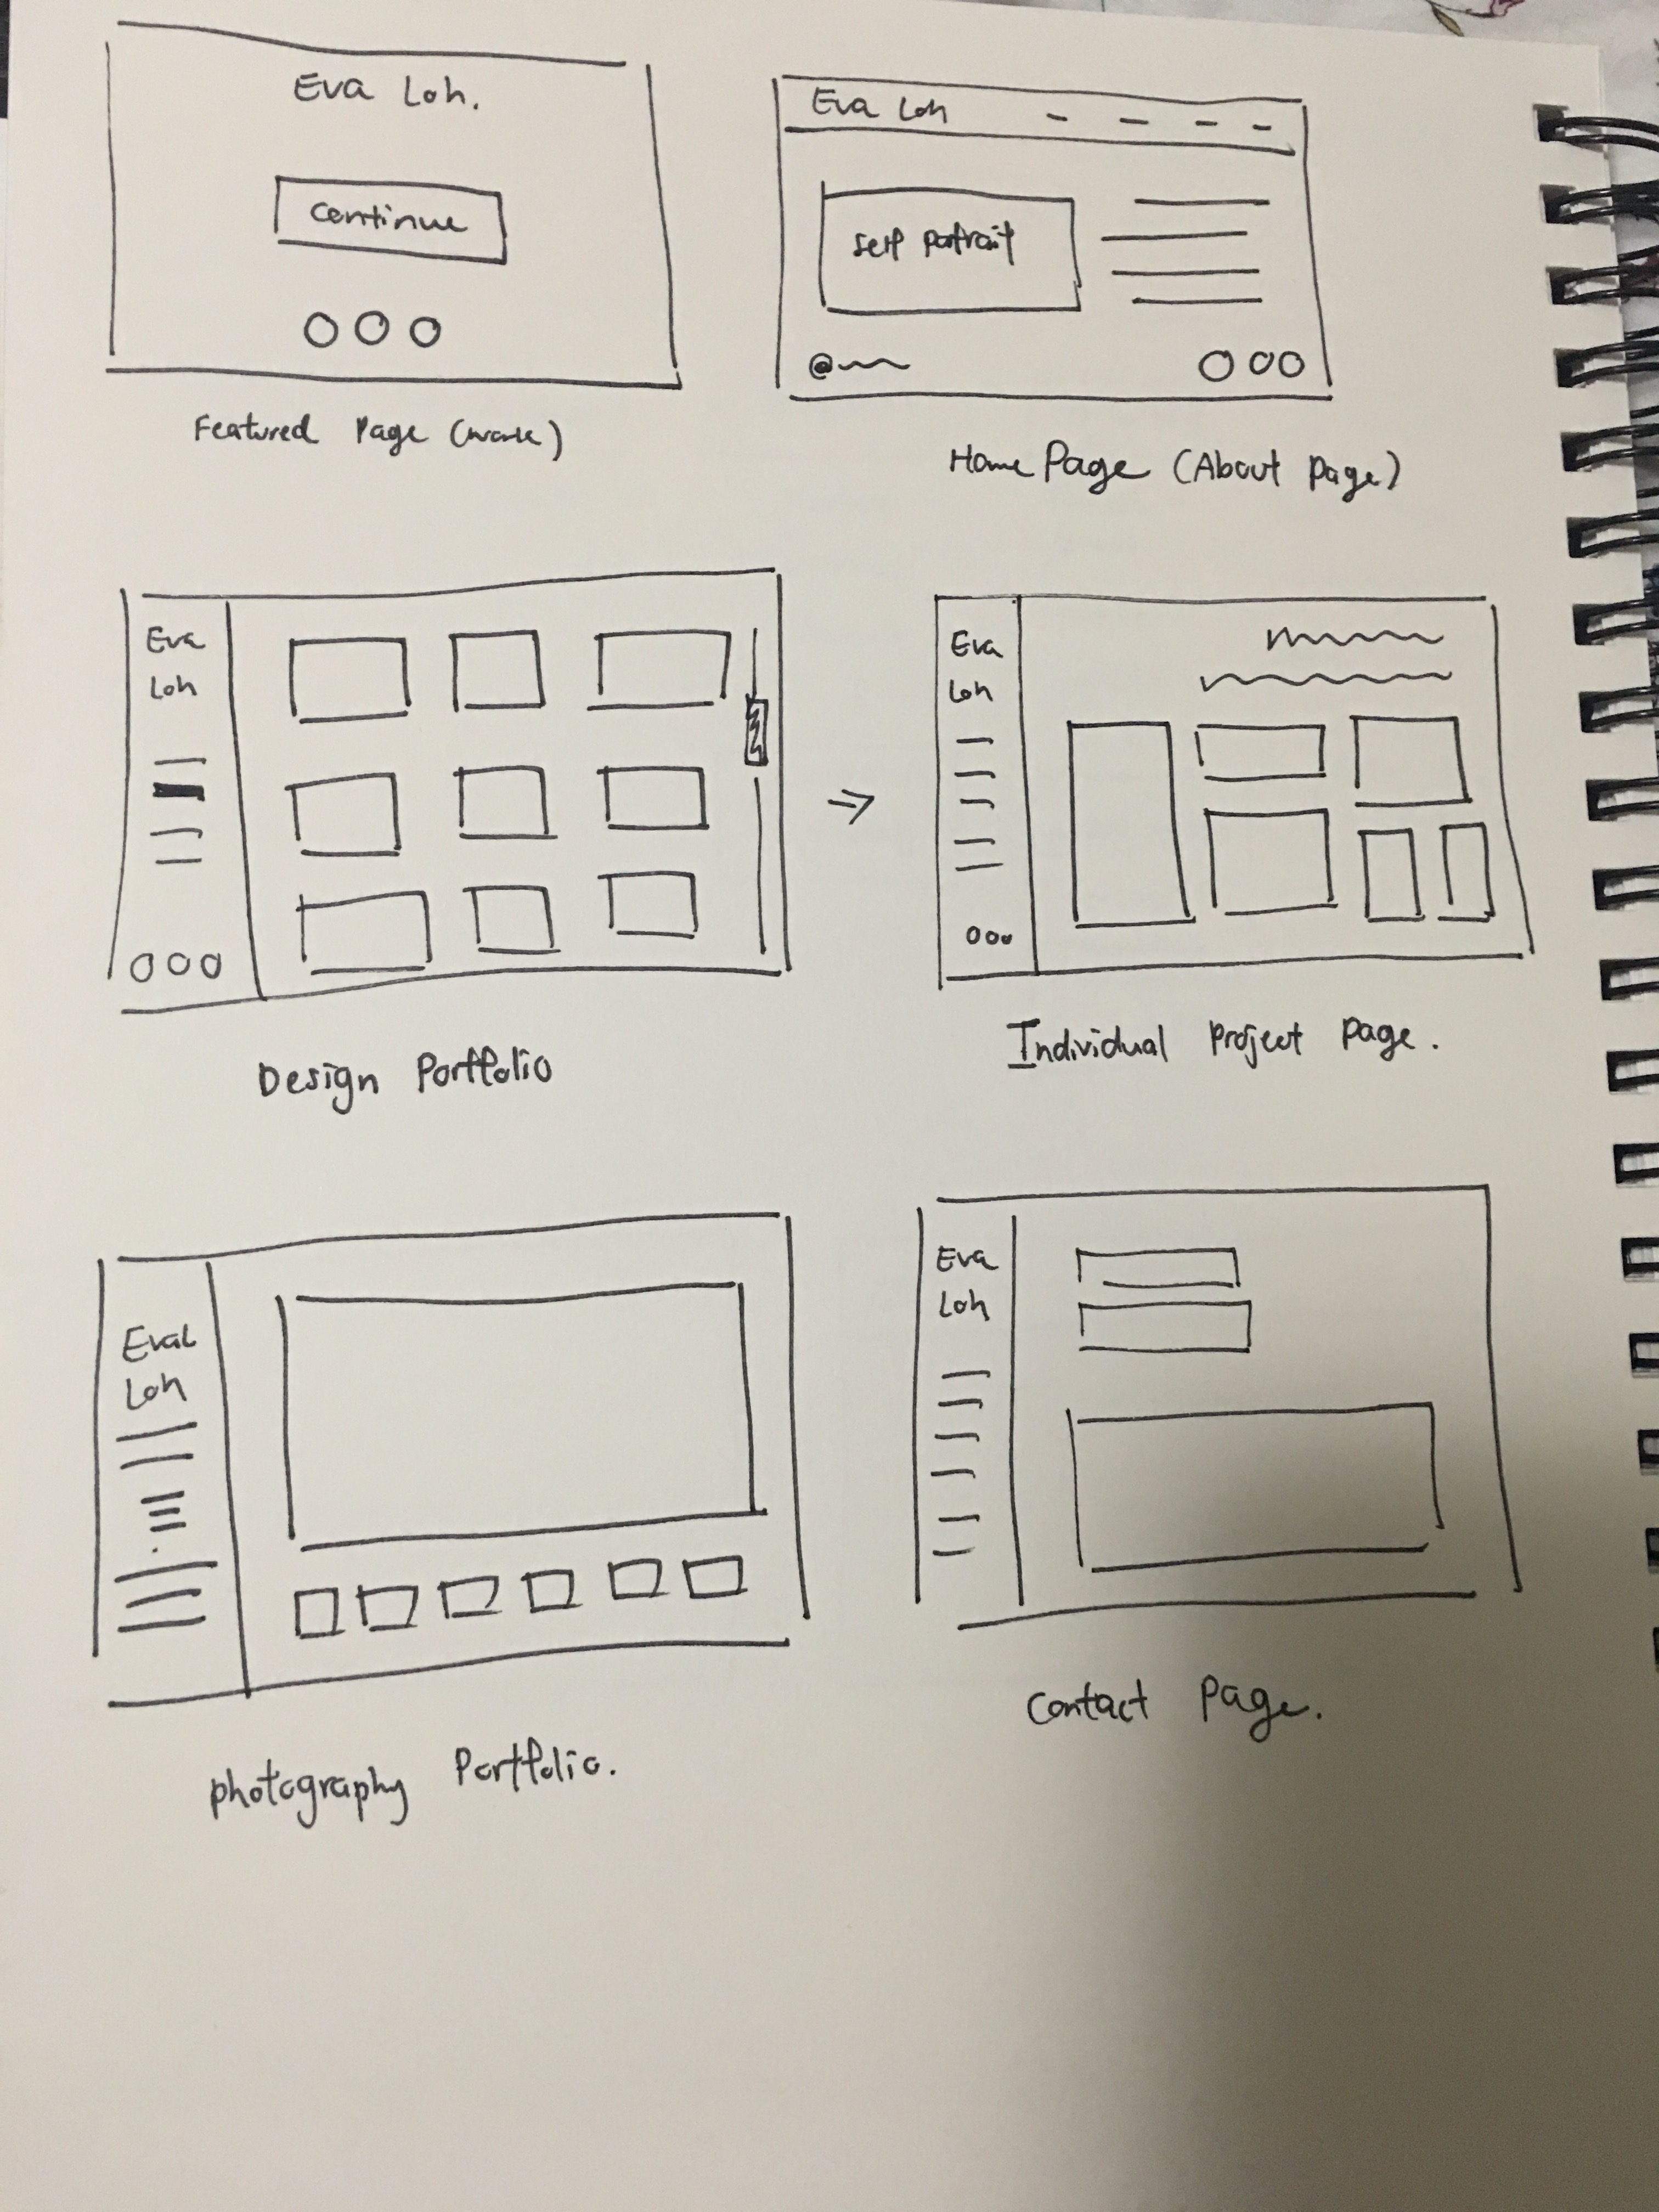 Eva Loh.
Continue
Featured Page (work)
Eva Loh
self portrait
@
Home Page (About Page)
Eva
Loh
Design Portfolio
Eva
Loh
Individual Project Page.
Eval
Loh
photography Portfolio.
Eva
Loh
Contact Page.